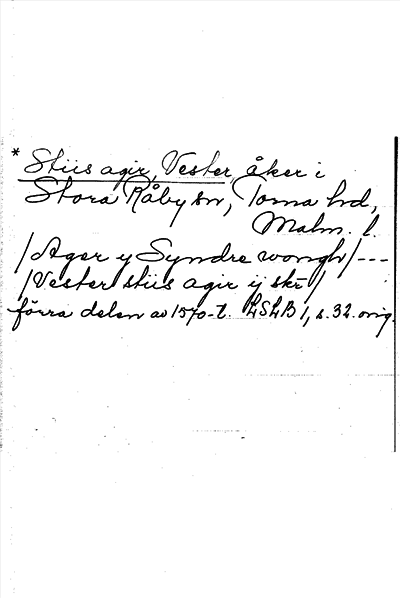 * Stiis agir, Vester, åker i
Stora Råby sn, Torna hd,
Malm. l.
/Ager y Syndre wongh/ ---
/Vester stiis agir ij skr/
förra delen av 1570-t. LSLB 1, s. 32. orig.